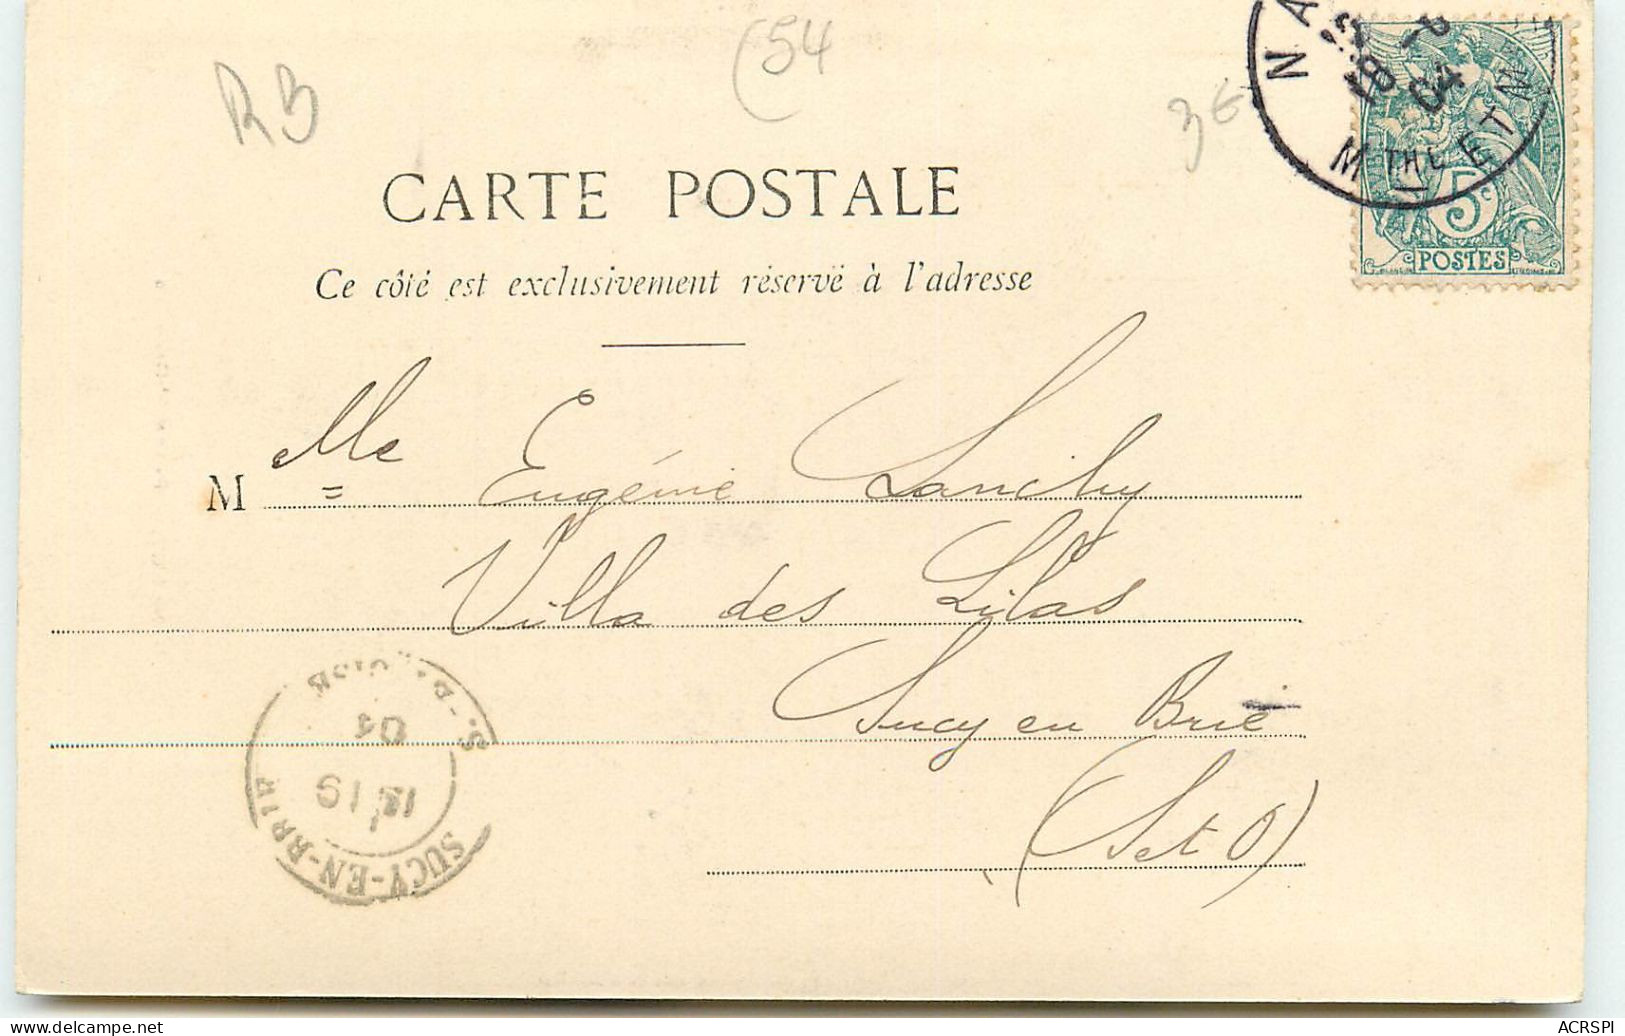 RB
(54
3€
CARTE POSTALE
Ce côté est exclusivement réservé à l'adresse
NA
18 - 04
M THE ET M
5c
POSTES
M lle Eugénie
Villa des Lilas
Sucy en Brie
(S et O)
SUCY-EN-BRIE
19
04
S.-
ACRSPI